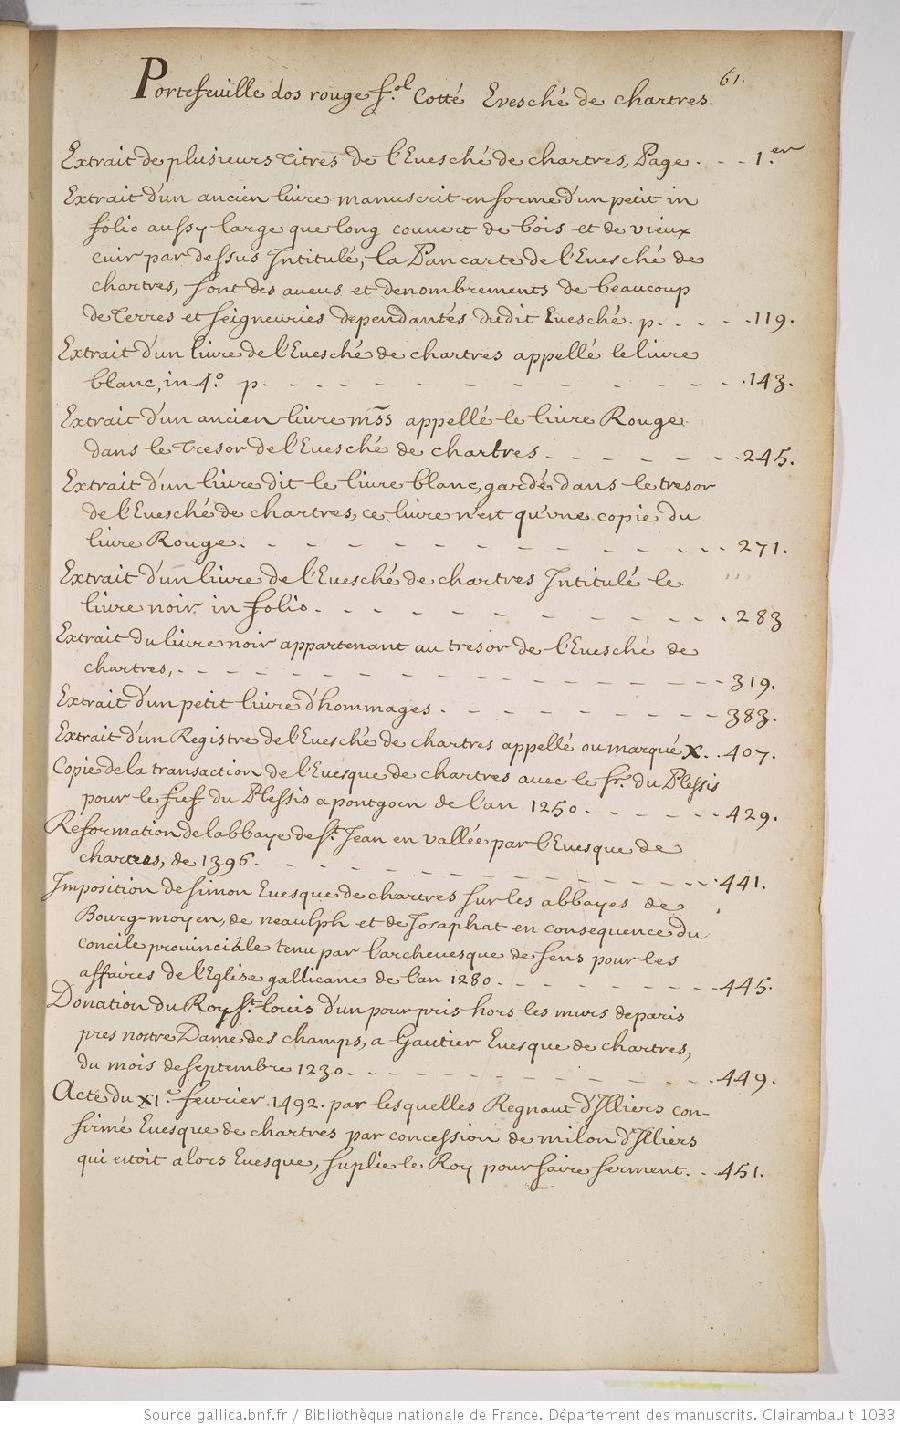 61.
Portefeuille dos rouge f.ol Cotté Evesché de chartres.
Extrait de plusieurs titres de l'Euesché de chartres, Page. - - 1.er
Extrait d'un ancien liure manuscrit en forme d'un petit in
folio aussy large que long couuert de bois et de vieux
cuir par dessus Intitulé, la Pancarte de l'Euesché de
chartres, sont des aueus et denombrements de beaucoup
de Terres et seigneuries dependantés dudit Euesché. p. - - - - 119.
Extrait d'un liure de l'Euesché de chartres appellé le liure
blanc, in 4.º p. - - - - - - - - - - - - 143.
Extrait d'un ancien liure mss appellé le liure Rouge.
dans le Tresor de l'Euesché de chartres. - - - - - 245.
Extrait d'un liure dit le liure blanc, gardé dans le tresor
de l'Euesché de chartres, ce liure n'est qu'vne copie du
liure Rouge. - - - - - - - - - - - - 271.
Extrait d'un liure de l'Euesché de chartres Intitulé le
liure noir in folio. - - - - - - - - - - 283
Extrait du liure noir appartenant au tresor de l'Euesché de
chartres, - - - - - - - - - - - - - 319.
Extrait d'un petit liure d'hommages. - - - - - - - 383.
Extrait d'un Registre de l'Euesché de chartres appellé ou marqué X. . 407.
Copie de la transaction de l'Euesque de chartres auec le sr. du Plessis
pour le fief du Plessis a pontgoen de l'an 1250. - - - - - 429.
Reformation de l'abbaye de St. Jean en vallée par l'Euesque de
chartres, de 1396. - - - - - - - - - - - 441.
Imposition de simon Euesque de chartres sur les abbayes de
Bourg-moyen, de neaulph et de Josaphat en consequence du
concile prouinciale tenu par l'archeuesque de sens pour les
affaires de l'Eglise gallicane de l'an 1280. - - - - - - 445.
Donation du Roy St. louis d'un pourpris hors les murs de paris
pres nostre Dame des champs, a Gautier Euesque de chartres,
du mois de septembre 1230. - - - - - - - - - 449.
Acte du XIe. feurier 1492. par lesquelles Regnaut d'Illiers con-
firmé Euesque de chartres par concession de milon d'Illiers
qui etoit alors Euesque, suplie le Roy pour faire serment. - - 451.
Source gallica.bnf.fr / Bibliothèque nationale de France. Département des manuscrits. Clairambault 1033